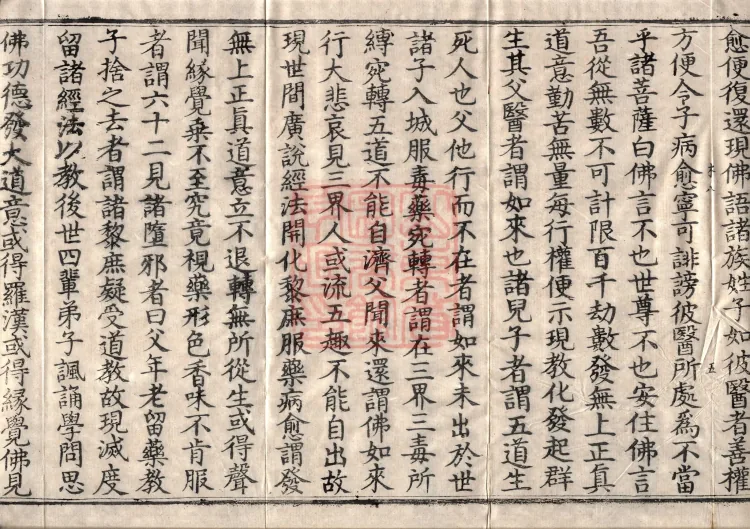 愈便復還現佛語諸族姓子如彼醫者善權
方便令子病愈寧可誹謗彼醫所處為不當
乎諸菩薩白佛言不也世尊不也安住佛言
吾從無數不可計限百千劫數發無上正真
道意勤苦無量每行權便示現教化發起群
生其父醫者謂如來也諸兒子者謂五道生
死人也父他行而不在者謂如來未出於世
諸子入城服毒藥宛轉者謂在三界三毒所
縛宛轉五道不能自濟父聞來還謂佛如來
行大悲哀見三界人或流五趣不能自出故
現世間廣說經法開化黎庶服藥病愈謂發
無上正真道意立不退轉無所從生或得聲
聞緣覺乘不至究竟視藥形色香味不肯服
者謂六十二見諸墮邪者曰父年老留藥教
子捨之去者謂諸黎庶癡受道教故現滅度
留諸經法以教後世四輩弟子諷誦學問思
佛功德發大道意或得羅漢或得緣覺佛見